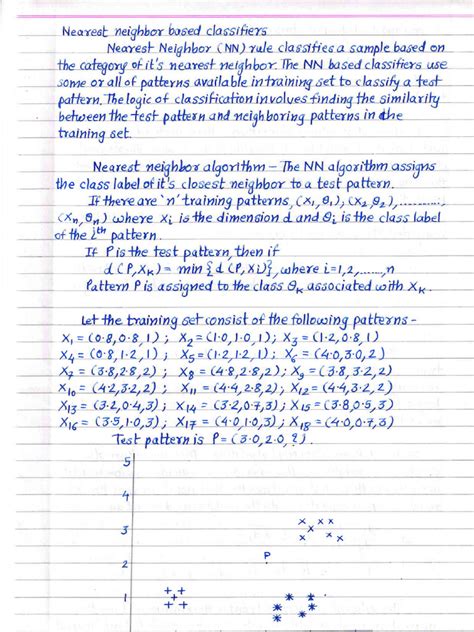 Nearest neighbor based classifiers
Nearest Neighbor (NN) rule classifies a sample based on
the category of it's nearest neighbor. The NN based classifiers use
some or all of patterns available in training set to classify a test
pattern. The logic of classification involves finding the similarity
between the test pattern and neighboring patterns in the
training set.
Nearest neighbor algorithm – The NN algorithm assigns
the class label of it's closest neighbor to a test pattern.
If there are 'n' training patterns, (X₁, θ₁), (X₂, θ₂), ..........,
(Xₙ, θₙ) where Xᵢ is the dimension d and θᵢ is the class label
of the iᵗʰ pattern.
If P is the test pattern, then if
d(P, Xₖ) = min {d(P, Xi)}, where i=1,2,......,n
Pattern P is assigned to the class θₖ associated with Xₖ.
Let the training set consist of the following patterns -
X₁ = (0.8, 0.8, 1) ; X₂ = (1.0, 1.0, 1) ; X₃ = (1.2, 0.8, 1)
X₄ = (0.8, 1.2, 1) ; X₅ = (1.2, 1.2, 1) ; X₆ = (4.0, 3.0, 2)
X₇ = (3.8, 2.8, 2) ; X₈ = (4.8, 2.8, 2) ; X₉ = (3.8, 3.2, 2)
X₁₀ = (4.2, 3.2, 2) ; X₁₁ = (4.4, 2.8, 2) ; X₁₂ = (4.4, 3.2, 2)
X₁₃ = (3.2, 0.4, 3) ; X₁₄ = (3.2, 0.7, 3) ; X₁₅ = (3.8, 0.5, 3)
X₁₆ = (3.5, 1.0, 3) ; X₁₇ = (4.0, 1.0, 3) ; X₁₈ = (4.0, 0.7, 3)
Test pattern is P = (3.0, 2.0, ?).
5
4
3
P
2
1